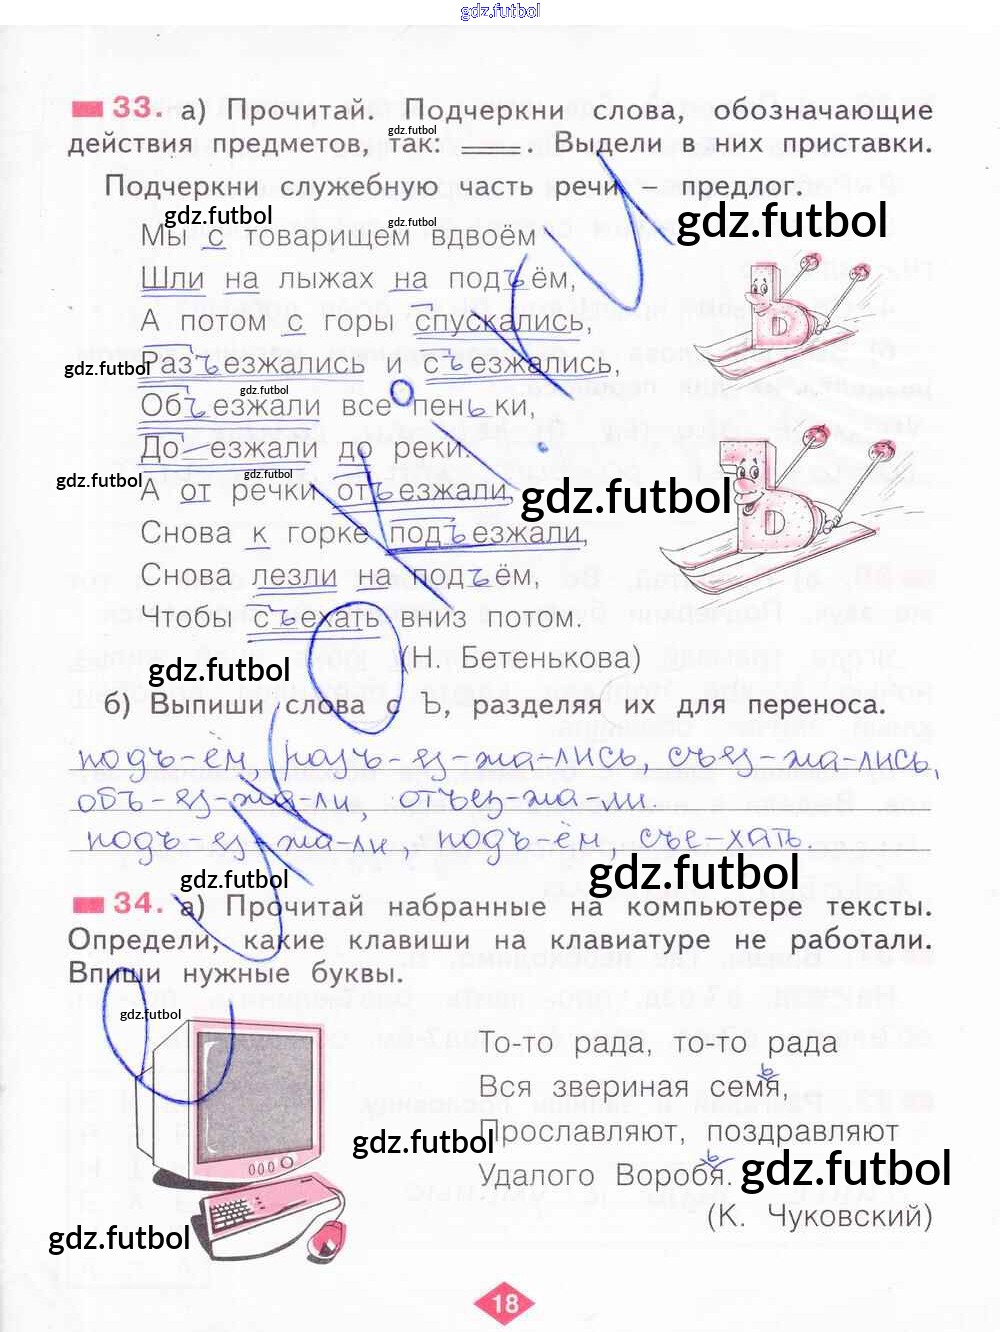 gdz.futbol
33. а) Прочитай. Подчеркни слова, обозначающие
gdz.futbol
действия предметов, так: ____. Выдели в них приставки.
Подчеркни служебную часть речи – предлог.
gdz.futbol gdz.futbol gdz.futbol
Мы с товарищем вдвоём
Шли на лыжах на подъём,
А потом с горы спускались,
Разъезжались и съезжались,
gdz.futbol gdz.futbol
Объезжали все пеньки,
До езжали до реки.
gdz.futbol gdz.futbol
А от речки отъезжали,
gdz.futbol
Снова к горке подъезжали,
Снова лезли на подъём,
Чтобы съехать вниз потом.
(Н. Бетенькова)
gdz.futbol
б) Выпиши слова с Ъ, разделяя их для переноса.
подъ-ём, разъ-ез-жа-лись, съез-жа-лись,
объ-ез-жа-ли, отъез-жа-ли
подъ-ез-жа-ли, подъ-ём, съе-хать.
gdz.futbol gdz.futbol
34. а) Прочитай набранные на компьютере тексты.
Определи, какие клавиши на клавиатуре не работали.
Впиши нужные буквы.
gdz.futbol
То-то рада, то-то рада
Вся звериная семья,
Прославляют, поздравляют
gdz.futbol
Удалого Воробья.
gdz.futbol
(К. Чуковский)
gdz.futbol
18